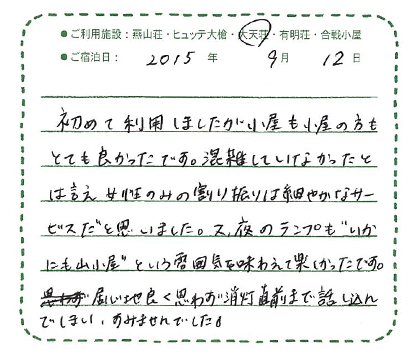 ●ご利用施設：燕山荘・ヒュッテ大槍・大天荘・有明荘・合戦小屋
●ご宿泊日： 2015 年 9 月 12 日
初めて利用しましたが小屋も小屋の方も
とても良かったです。混雑していなかったと
は言え女性のみの割り振りは細やかなサー
ビスだと思いました。又、夜のランプも"いか
にも山小屋"という雰囲気を味わえて楽しかったです。
居心地良く思わず消灯直前まで話し込ん
でしまい、すみませんでした!